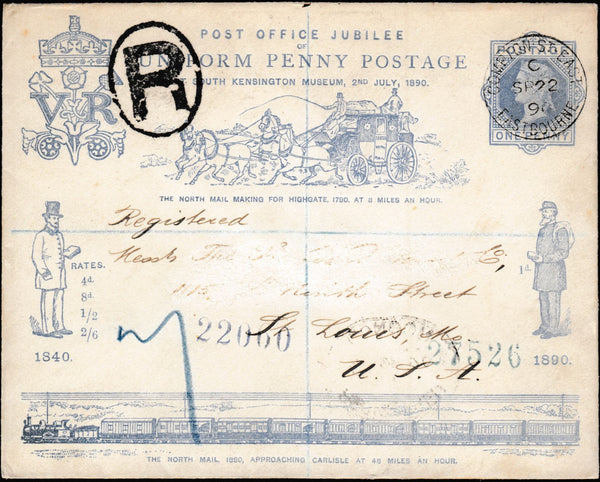 POST OFFICE JUBILEE
OF
UNIFORM PENNY POSTAGE
SOUTH KENSINGTON MUSEUM, 2ND JULY, 1890.
V R
R
COMPTON ST. EAST
C
SP 22
9
EASTBOURNE
ONE PENNY
THE NORTH MAIL MAKING FOR HIGHGATE, 1790. AT 8 MILES AN HOUR.
Registered
Messrs The Co,
RATES.
4d.
8d.
1/2
2/6
1840.
1d.
Street
22060
St Louis, Mo
27526
U. S. A.
1890.
THE NORTH MAIL, 1890, APPROACHING CARLISLE AT 48 MILES AN HOUR.